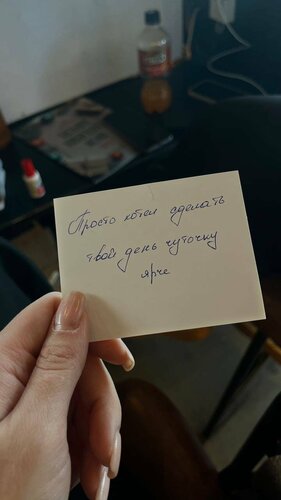 Просто хотел сделать
твой день чуточку
ярче